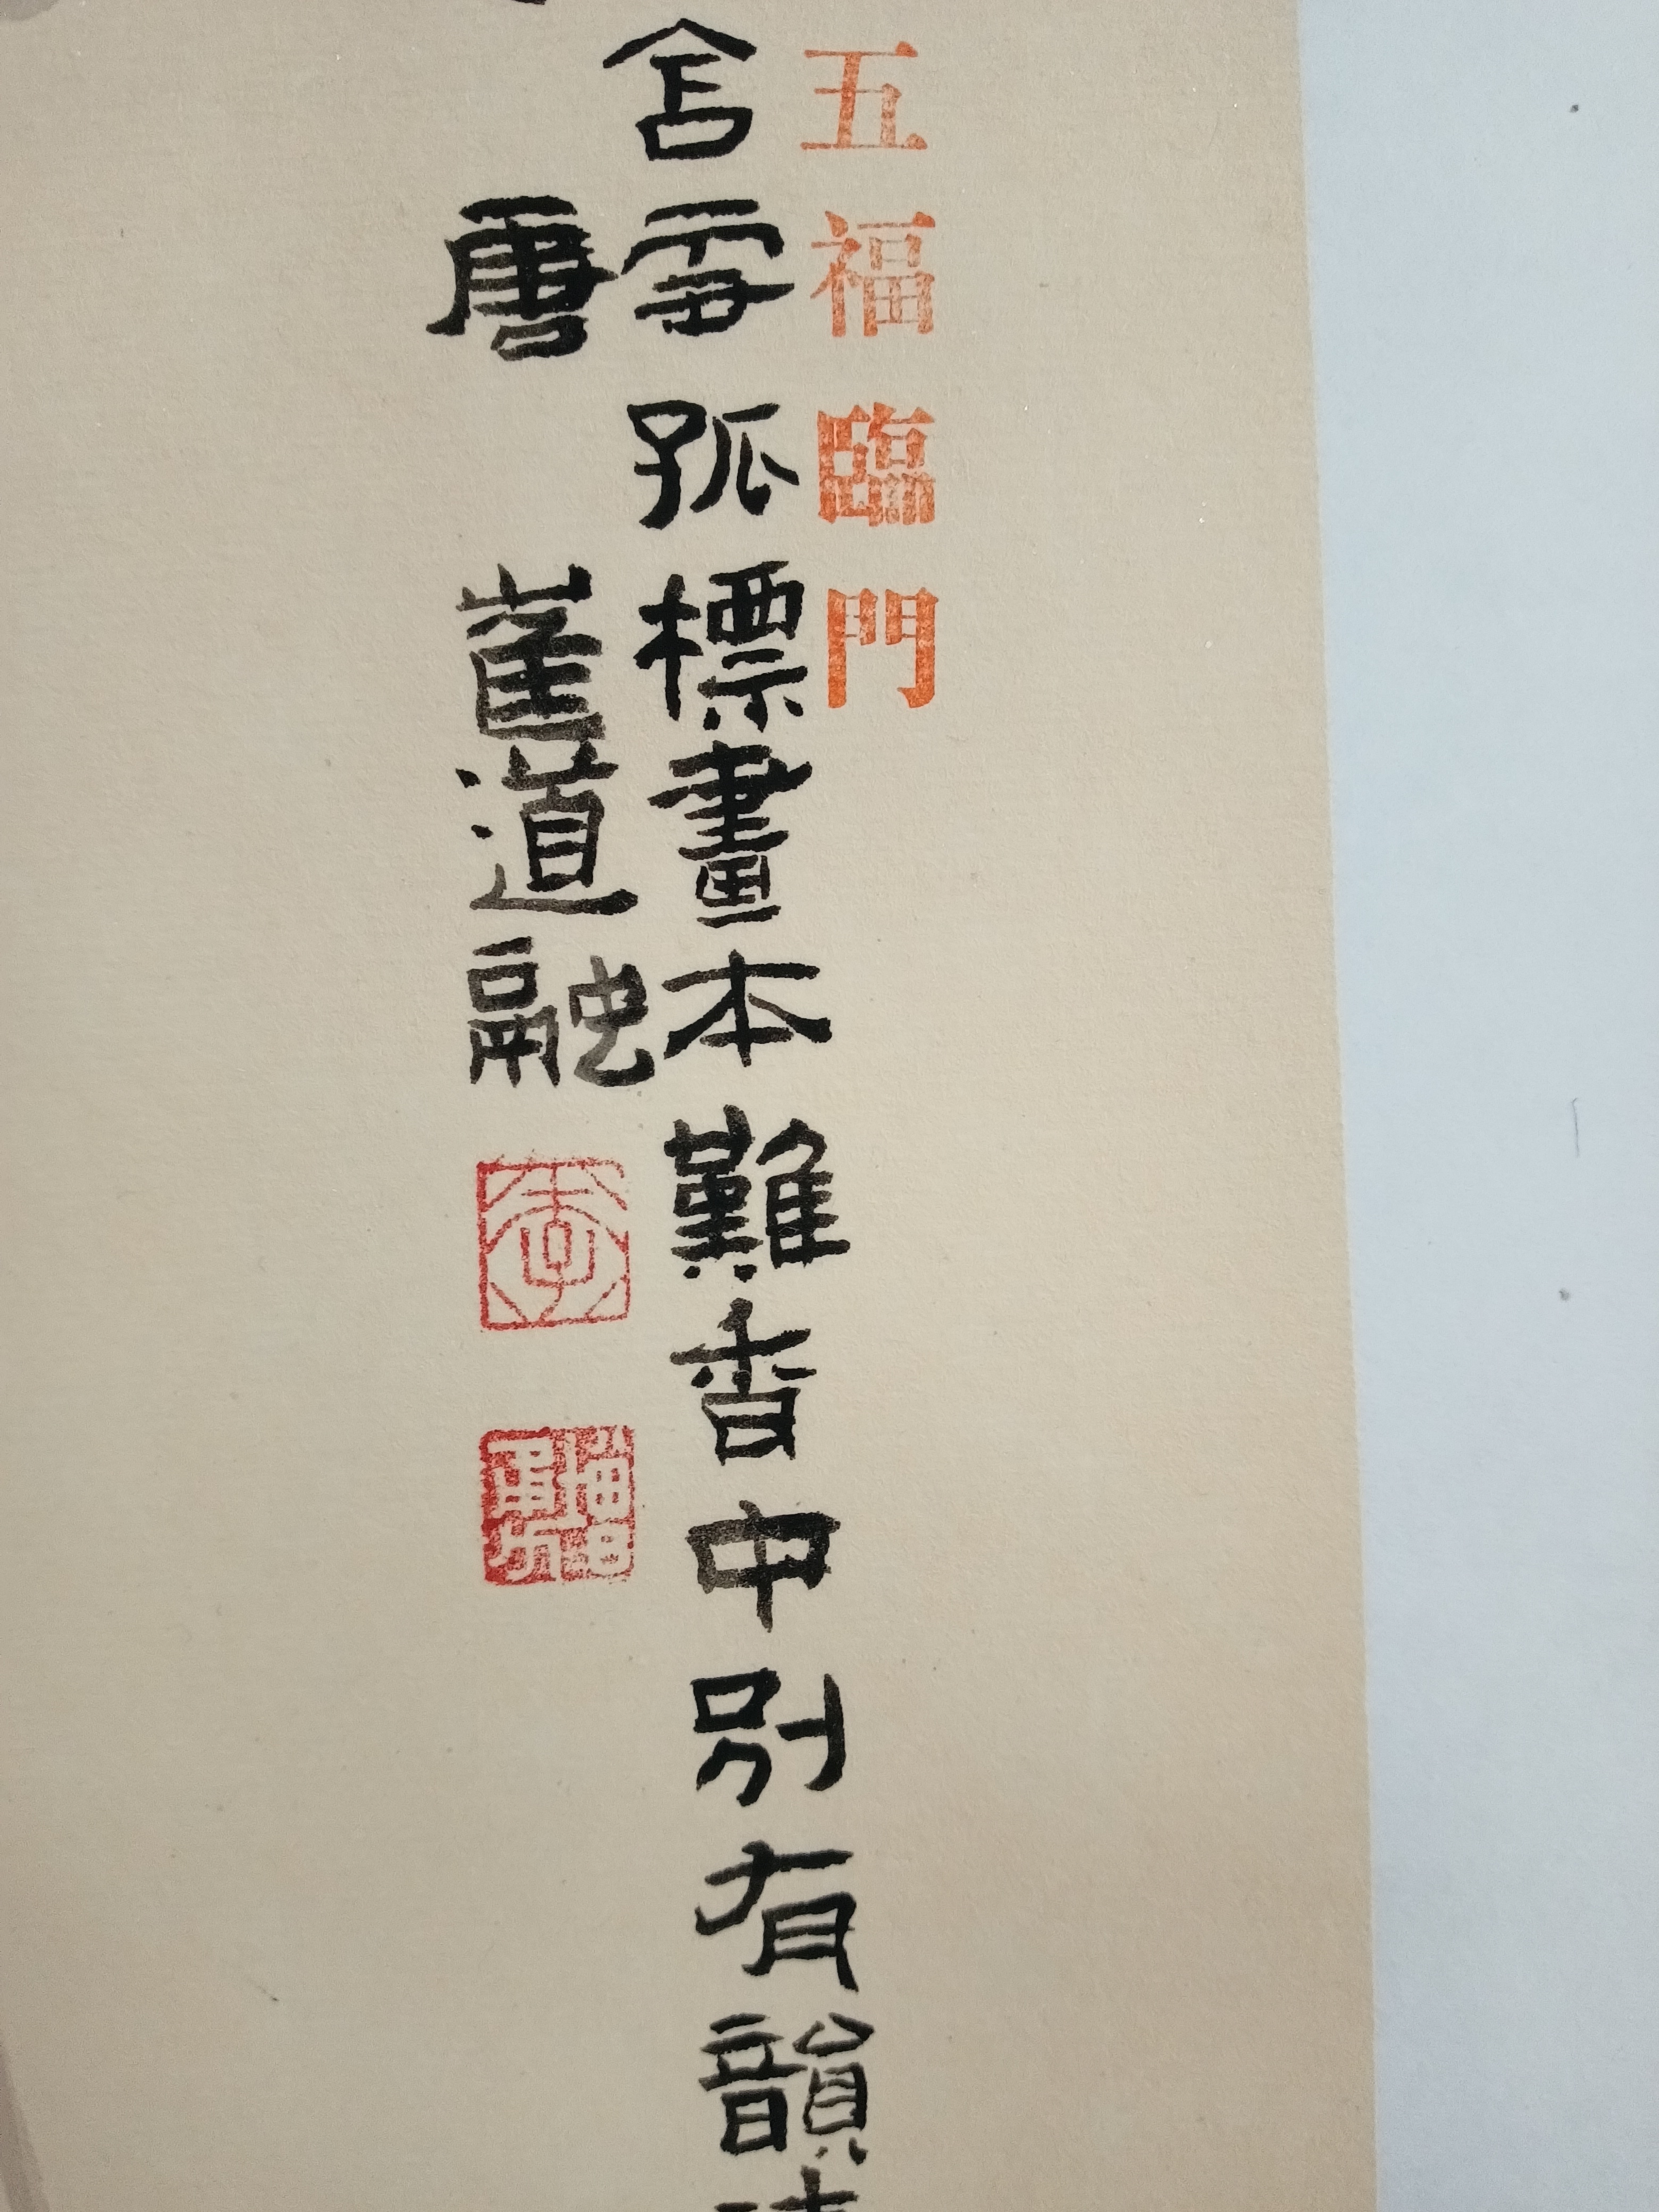 五福臨門
含雪孤標畫本難香中別有韻清
唐 崔道融
李